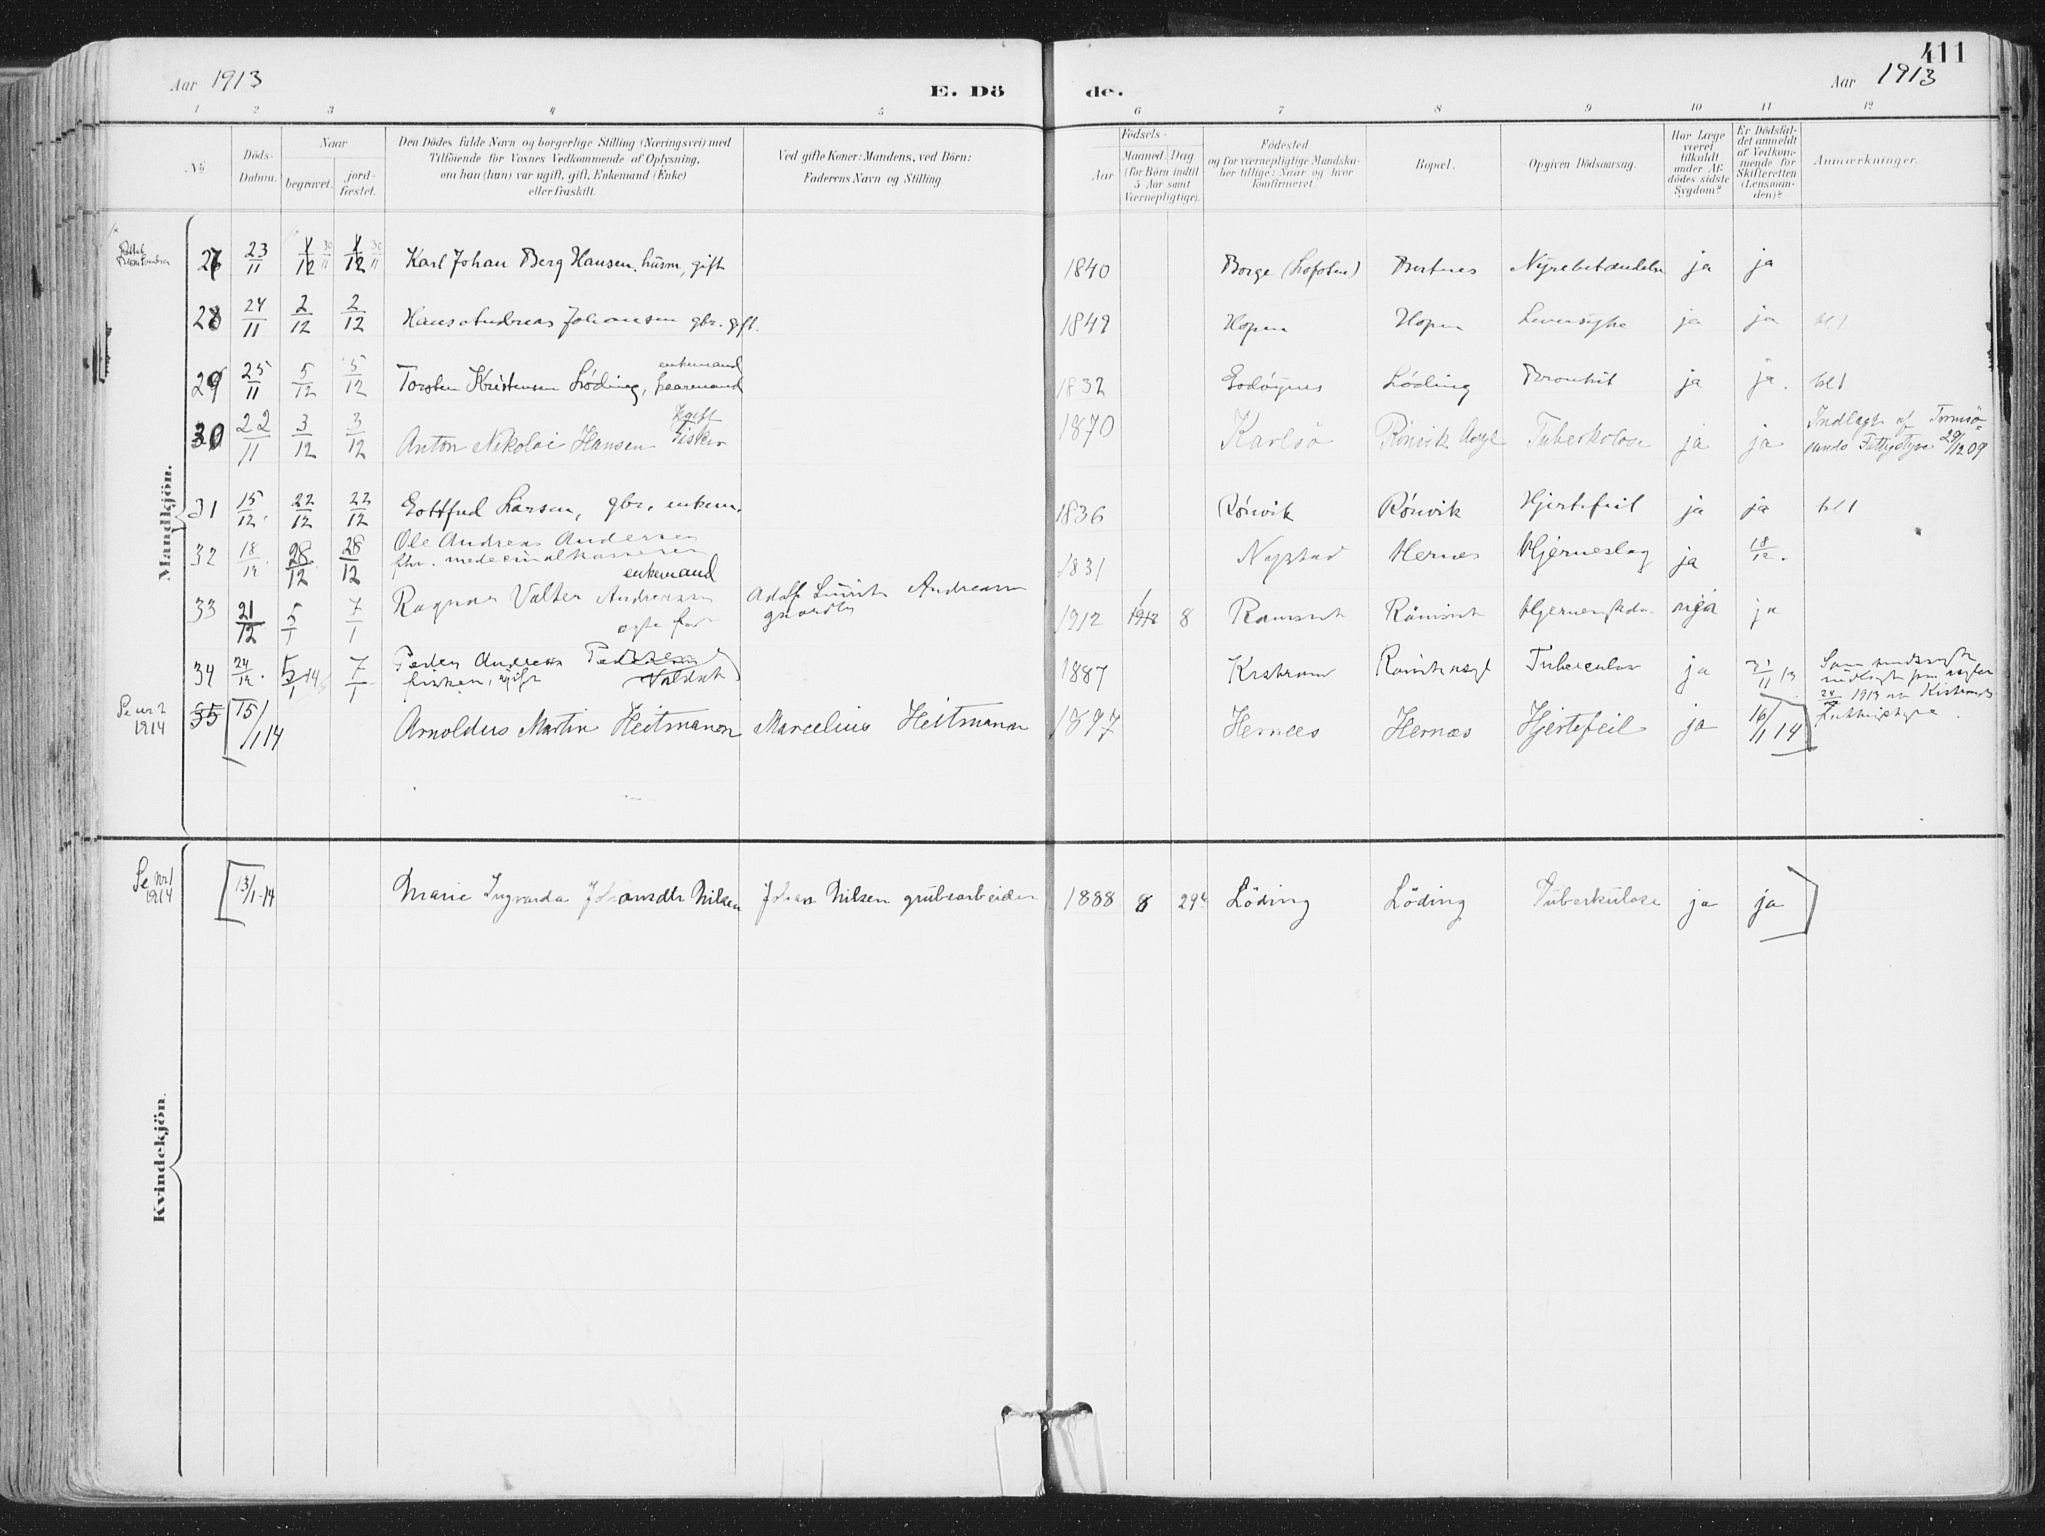 411
Aar 1913
E. Dö
de.
Aar 1913
1 2 3 4 5 6 7 8 9 10 11 12
No
Döds-Datum.
Naar
begravet.
jord-fæstet.
Den Dödes fulde Navn og borgerlige Stilling (Næringsvei) med
Tilföiende for Voxnes Vedkommende af Oplysning,
om han (hun) var ugift, gift, Enkemand (Enke)
eller fraskilt.
Ved gifte Koner: Mandens, ved Börn:
Faderens Navn og Stilling
Födsels-
Aar
Maaned. Dag
(for Börn indtil
5 Aar samt
Værnepligtige).
Födested
og for værnepligtige Mandska-
ber tillige: Naar og hvor
konfirmeret.
Bopæl.
Opgiven Dödsaarsag.
Har Læge
været
tilkaldt
under Af-
dödes sidste
Sygdom?
Er Dödsfal-
det anmeldt
af Vedkom-
mende for
Skifteretten
(Lensman-
den)?
Anmærkninger.
Mandkjön.
27 23/11 1/12 30/11 1/12 30/11 Karl Johan Berg Hansen, husm, gift 1840 Borge (Lofoten) Bertnes Nyrebetændelse ja ja
28 24/11 2/12 2/12 Hans Andreas Johansen gbr. gift. 1849 Hopen Hopen ja ja
enkemand
29 25/11 5/12 5/12 Torsten Kristensen Löding, kaarmand 1832 Godöynes Löding Bronkit ja ja.
30 22/11 3/12 3/12 Anton Nikolai Hansen Fisker 1870 Karlsö Rönvik Asyl Tuberkolose ja ja Indlagt af Tromsö-
sunds Fattigstyre 29/12 09
31 15/12. 22/12 22/12 Gottfred Larsen, gbr. enkem. 1836 Rönvik Rönvik Hjertefeil ja ja
32 18/12. 28/12 28/12 Ole Andreas Andersen
enkemand 1831 Nystad Hernes Hjerneslag ja 18/12.
33 21/12 5/1 7/1 Ragnar Valter Andreassen
ægte født Adolf Andreassen
1912 8 Ramsvik Ramsvik ja
34 24/12. 5/1 14 7/1 Peder Andreas Pedersen
fisker, ugift 1887 Kistrand Rønvik asyl Tuberculose ja
Se nr 2
1914
35 [15/1 14 Arnoldus Martin Heitmann Marcelius Heitmann 1897 Hernes Hernæs Hjertefeil ja 16/1 14]
Kvindekjön.
Se nr 1
1914
[13/1-14 Marie Ingvarda Johansdtr Nilsen Johan Nilsen grubearbeider 1888 8 29 Löding Löding Tuberkulose ja ja]